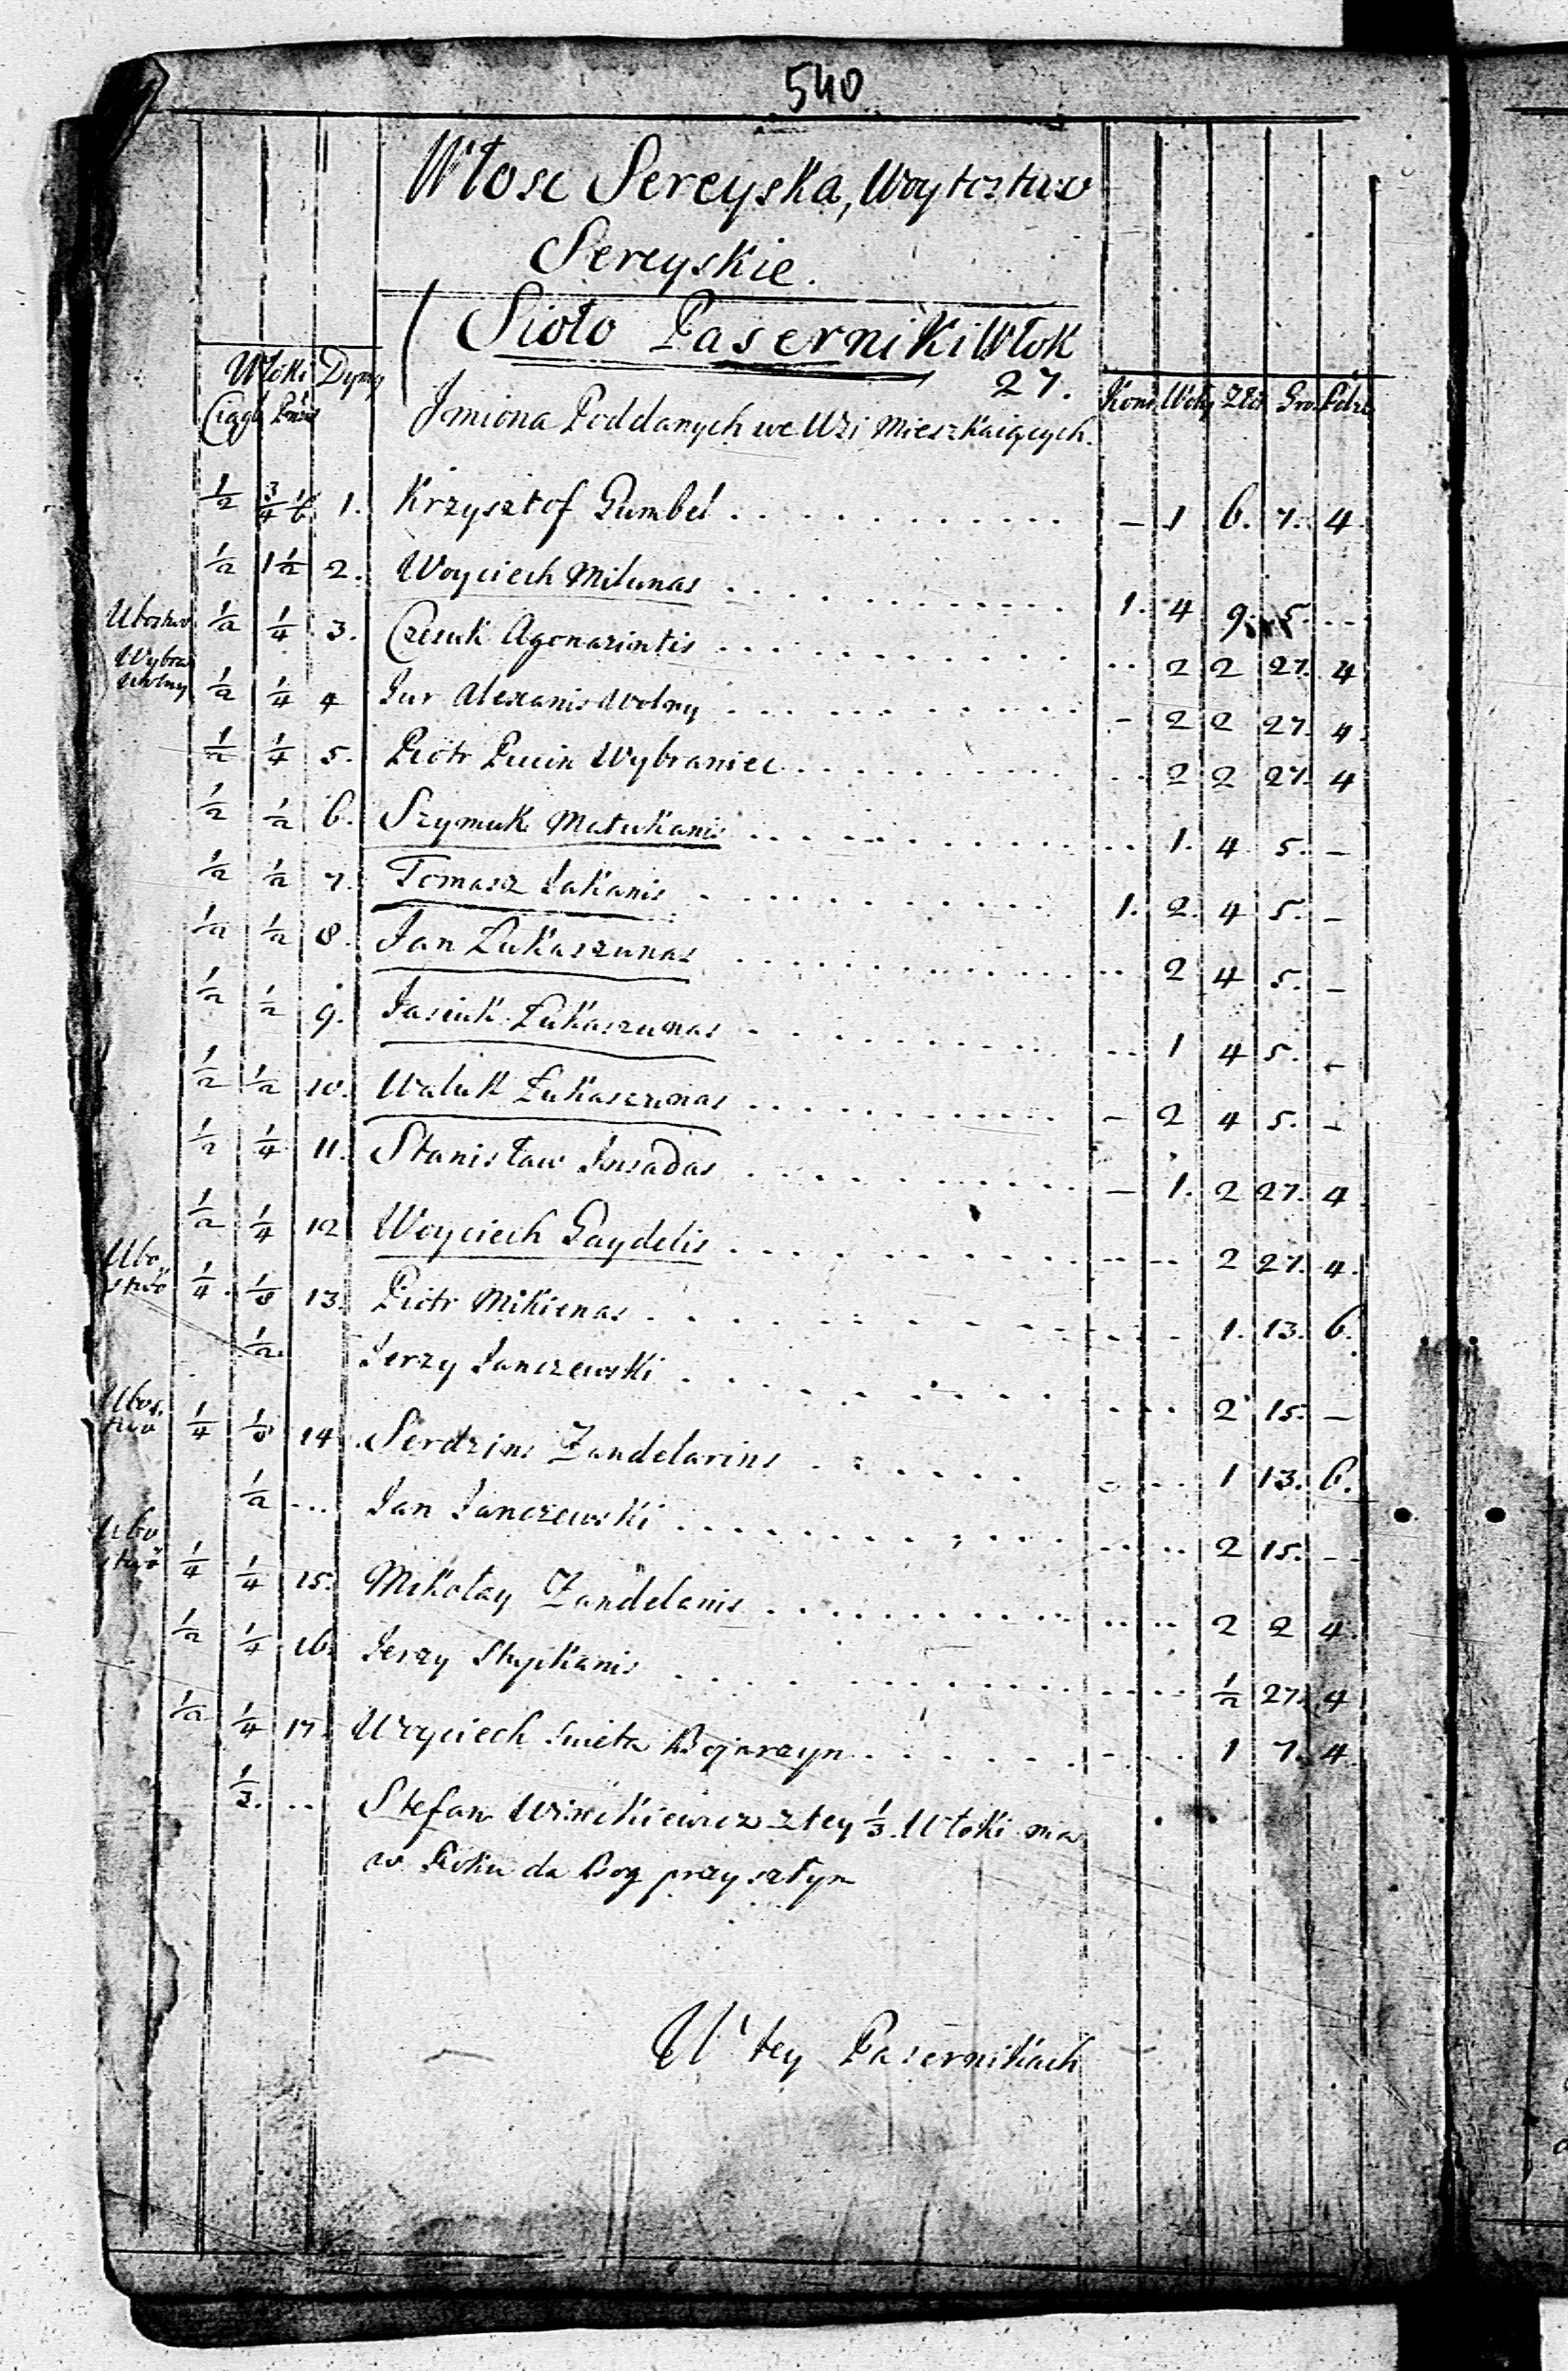 540
Włosc Sereyska, Woytostwo
Sereyskie.
Sioło Paserniki Włok
27.
Włoki Dymy
Ciągł
Imiona Poddanych we Wsi Mieszkaiących.
Koni Woły Złot Gro
1/2 3/4 1/6 1. Krzysztof Gumbel - 1 6. 7. 4.
1/2 1 1/2 2. Woyciech Milunas 1. 4 9. 5. --
Ubostwo 1/2 1/4 3. Czesuk Agonarintis -- 2 2 27. 4
Wybra
Wolny 1/2 1/4 4 Jur Alexanis Wolny - 2 2 27. 4.
1/2 1/4 5. Piotr Pucin Wybraniec -- 2 2 27. 4
1/2 1/2 6. Szymuk Matukanis -- 1. 4 5. -
1/2 1/2 7. Tomasz Jakanis 1. 2. 4 5. -
1/2 1/2 8. Jan Łukaszunas -- 2 4 5. -
1/2 1/2 9. Jasiuk Łukaszunas -- 1 4 5. -
1/2 1/2 10. Waluk Łukaszunas - 2 4 5. -
1/2 1/4 11. Stanisław Jnsadas - 1. 2 27. 4
1/2 1/4 12 Woyciech Gaydelis -- -- 2 27. 4.
Ubo
stwo 1/4 1/8 13. Piotr Mikienas 1. 13. 6.
1/2. Jerzy Janczewski 2 15. -
Ubos.
two 1/4 1/8 14. Serdzins Zandelarins 1 13. 6.
1/2 ... Jan Janczewski 2 15. --
Ubo
stwo 1/4 1/4 15. Mikołay Zandelanis 2 2 4.
1/2 1/4 16. Jerzy Stupkanis 1/2 27. 4
1/2 1/4 17. Woyciech Swieta Bojarzyn 1 7. 4
1/3. .. Stefan z tey 1/3 Włoki ma
w Roku da Bog przyszłym
W tey Pasernikach